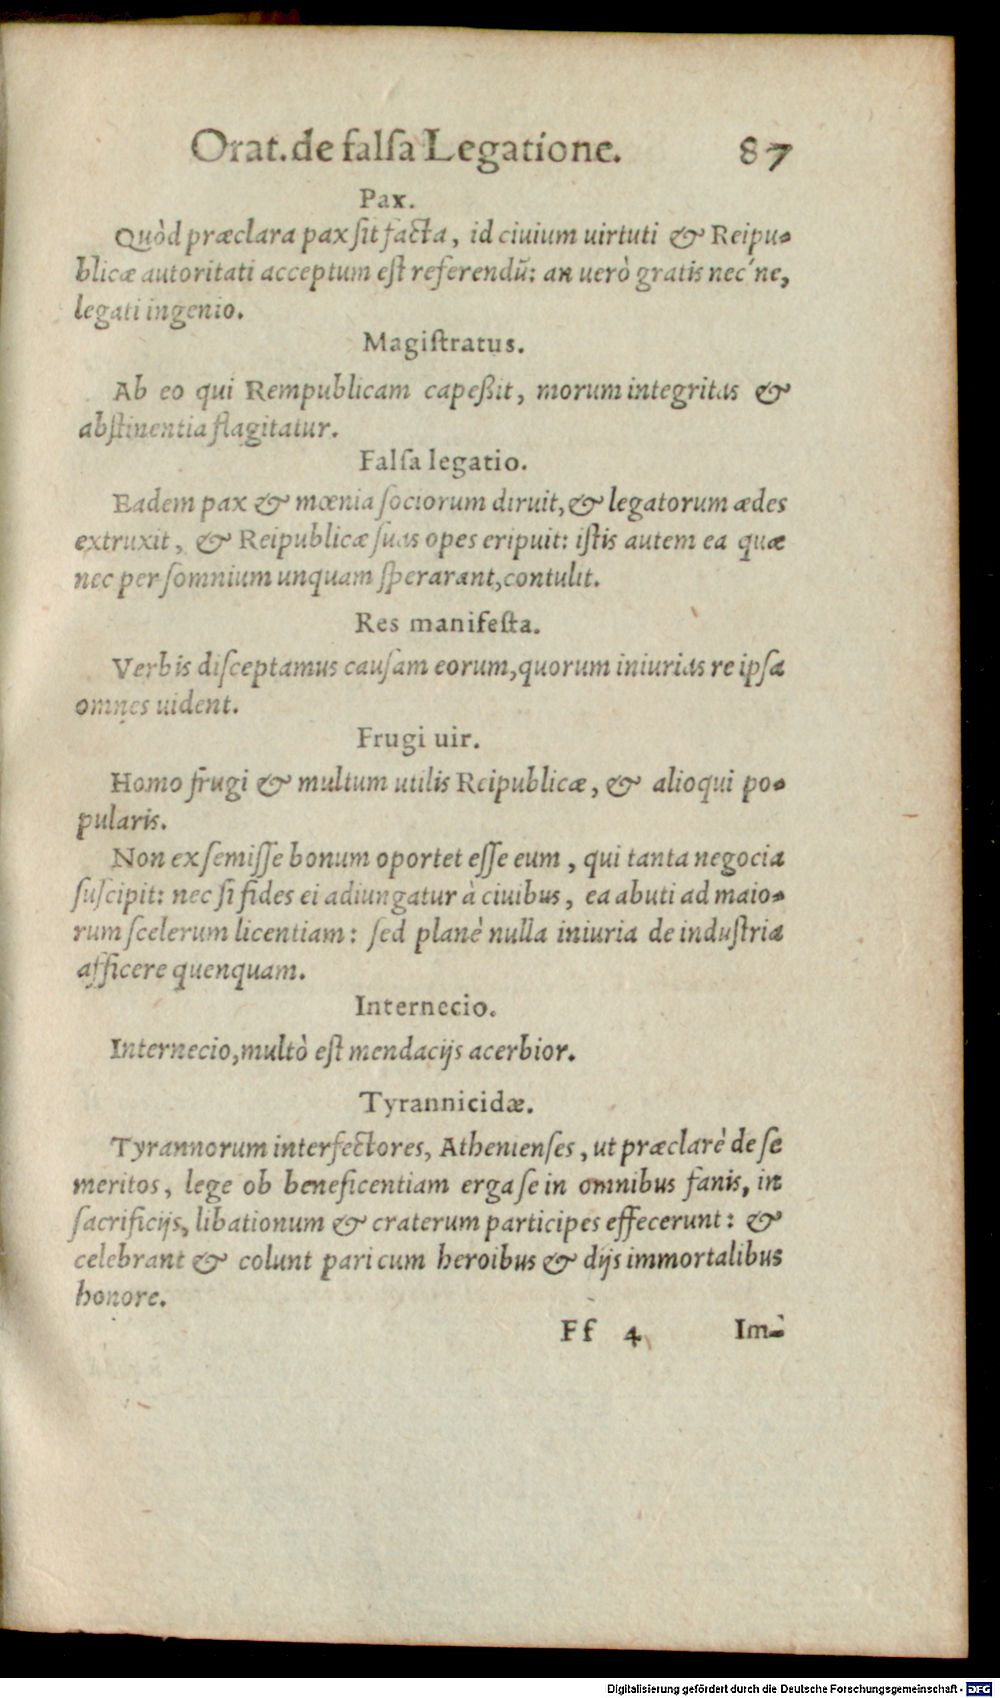 Orat. de falſa Legatione. 87
Pax.
Quòd præclara pax ſit facta, id ciuium uirtuti & Reipu-
blicæ autoritati acceptum eſt referendũ: an uerò gratis nec´ne,
legati ingenio.
Magiſtratus.
Ab eo qui Rempublicam capeßit, morum integritas &
abſtinentia flagitatur.
Falſa legatio.
Eadem pax & mœnia ſociorum diruit, & legatorum ædes
extruxit, & Reipublicæ ſuas opes eripuit: iſtis autem ea quæ
nec per ſomnium unquam ſperarant, contulit.
Res manifeſta.
Verbis diſceptamus cauſam eorum, quorum iniurias re ipſa
omnes uident.
Frugi uir.
Homo frugi & multum utilis Reipublicæ, & alioqui po-
pularis.
Non ex ſemiſſe bonum oportet eſſe eum, qui tanta negocia
ſuſcipit: nec ſi fides ei adiungatur à ciuibus, ea abuti ad maio-
rum ſcelerum licentiam: ſed planè nulla iniuria de induſtria
afficere quenquam.
Internecio.
Internecio, multò eſt mendacijs acerbior.
Tyrannicidæ.
Tyrannorum interfectores, Athenienſes, ut præclarè de ſe
meritos, lege ob beneficentiam erga ſe in omnibus fanis, in
ſacrificijs, libationum & craterum participes effecerunt: &
celebrant & colunt pari cum heroibus & dijs immortalibus
honore.
Ff 4 Im-
Digitalisierung gefördert durch die Deutsche Forschungsgemeinschaft - DFG